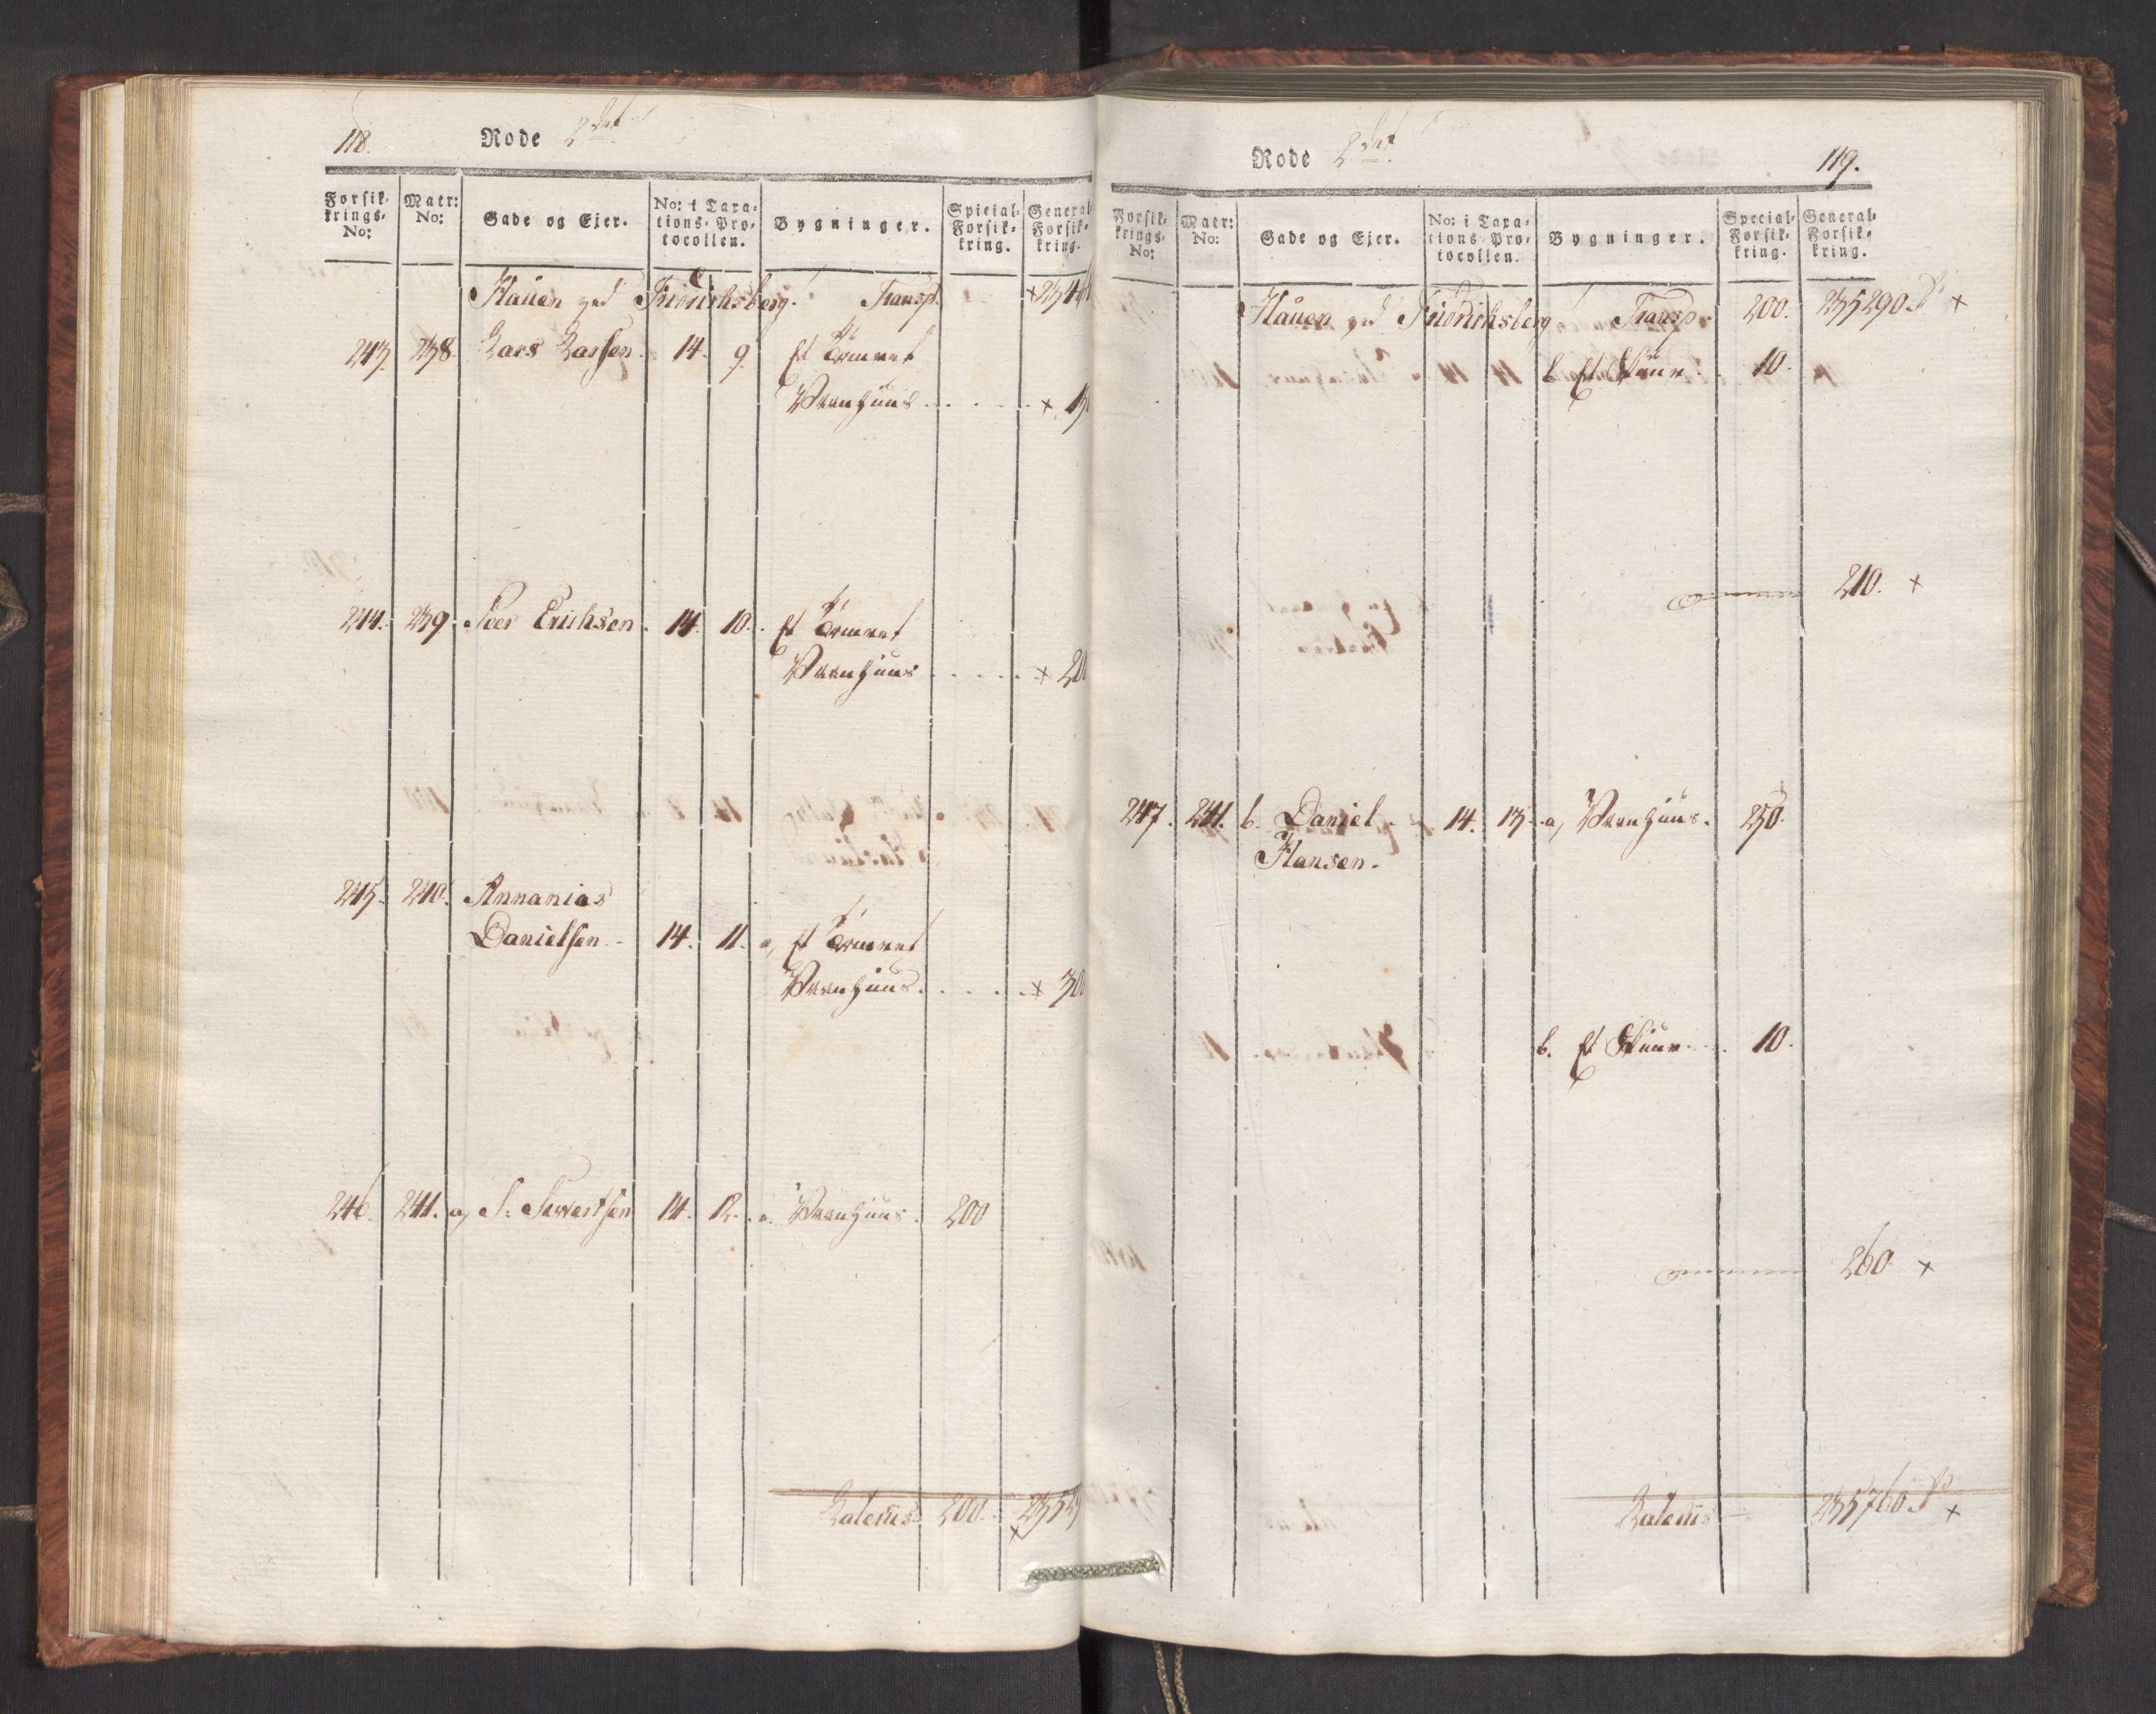 118. Rode 2det
Forsik-krings-No: Matr: No: Gade og Ejer. No: i Taxa-tions-Pro-tocollen. Bygninger. Spicial-Forsik-kring. General-Forsik-kring.
Hauen ved Fridrichsberg. Transp.
243. 238. Lars Larsen 14. 9. Et Tömret
Vaanhuus
244. 239. Peer Erichsen. 14. 10. Et Tömret
Vaanhuus
245. 240. Annanias
Danielsen 14. 11. a, Et Tömret
Vaanhuus
246. 241. a, S: Siwertsen 14. 12. a. Vaanhuus. 200
Lateris 200.
Rode 2det 119.
Forsik-krings-No: Matr: No: Gade og Ejer. No: i Taxa-tions-Pro-tocollen. Bygninger. Special-Forsik-kring. General-Forsik-kring.
Hauen ved Fridrichsberg Transp. 200. 235290 x
b. Et Skuur. 10.
210. x
247. 241. b. Daniel 14. 13. a, Vaanhuus. 250.
Hansen.
b. Et Skuur 10.
260 x
Lateris 235760 x